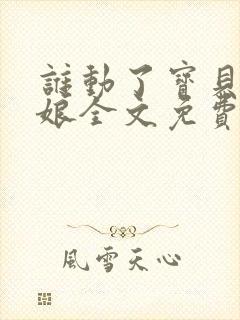 誰動了寶見
娘全文免費
風雪天心